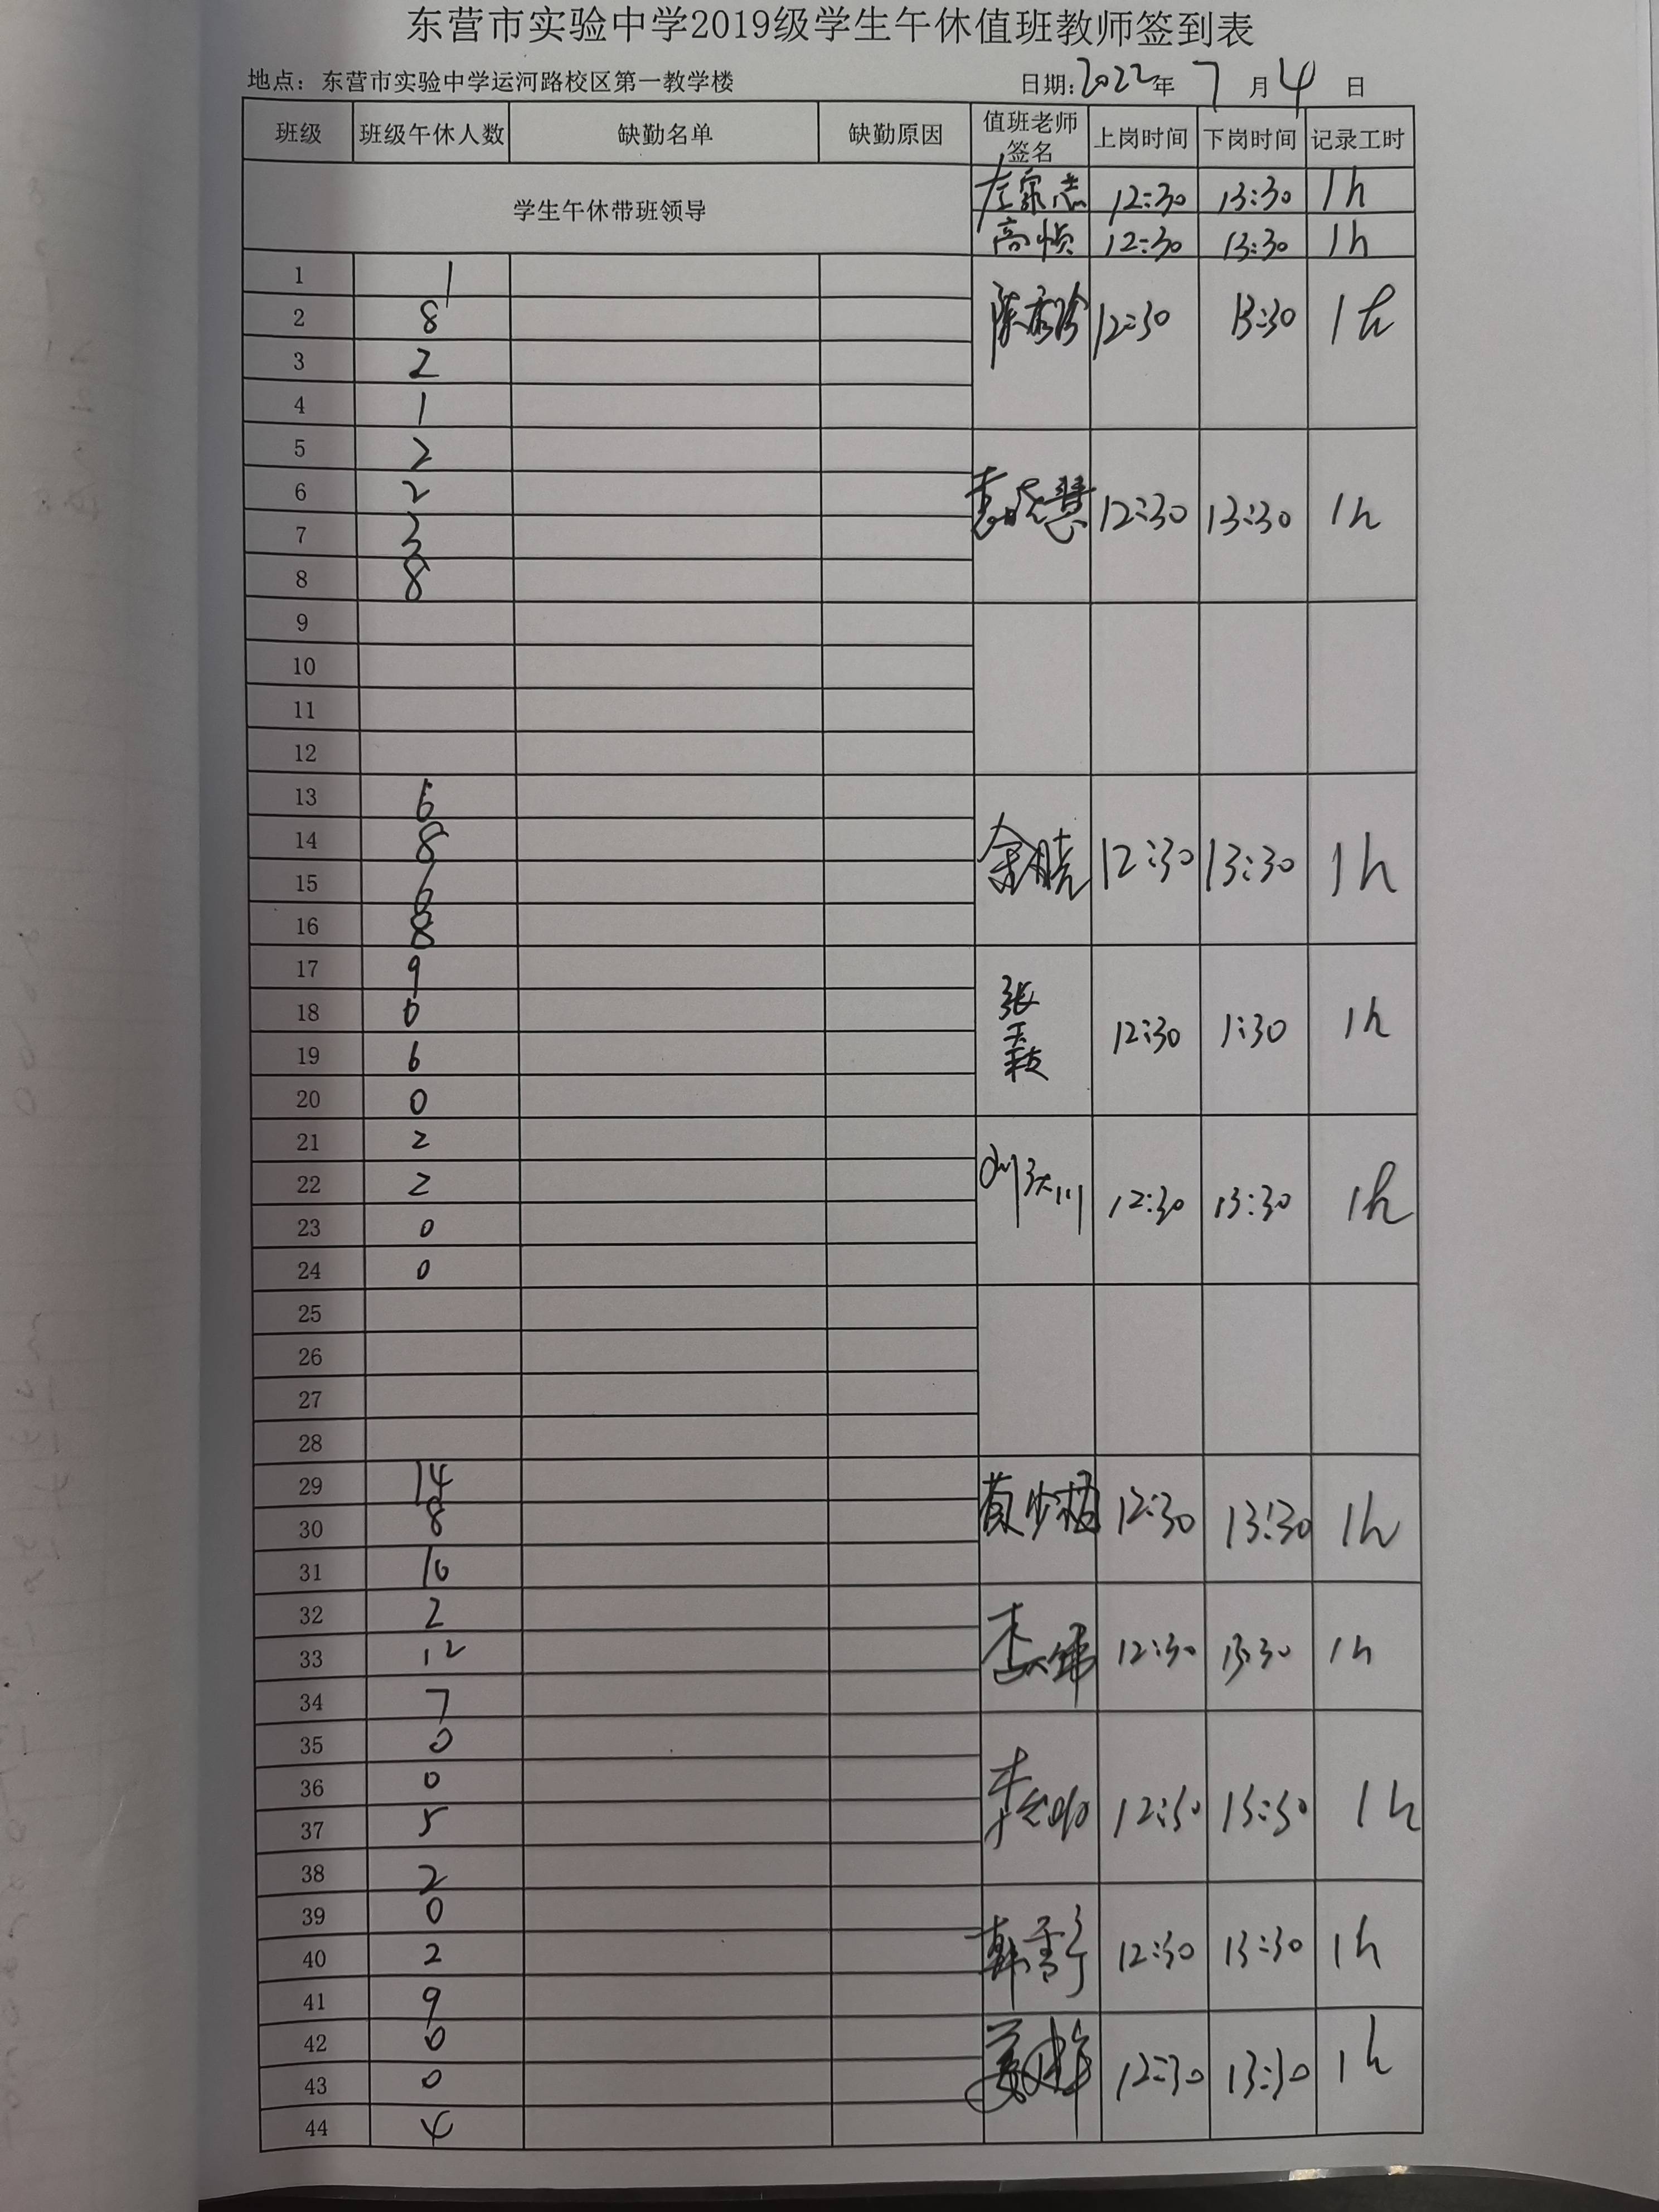 东营市实验中学2019级学生午休值班教师签到表
地点：东营市实验中学运河路校区第一教学楼 日期:2022年 7 月 4 日
班级 班级午休人数 缺勤名单 缺勤原因 值班老师签名 上岗时间 下岗时间 记录工时
学生午休带班领导
12:30 13:30 1h
高 12:30 13:30 1h
1 1
2 8 陈 12:30 13:30 1h
3 2
4 1
5 2
6 2 12:30 13:30 1h
7 3
8 8
9
10
11
12
13 6
14 8 12:30 13:30 1h
15 6
16 8
17 9
18 0 张 12:30 1:30 1h
19 6
20 0
21 2
22 2 刘 川 12:30 13:30 1h
23 0
24 0
25
26
27
28
29 14
30 8 12:30 13:30 1h
31 10
32 2
33 12 李 12:30 13:30 1h
34 7
35 0
36 0
37 5 李 12:30 13:30 1h
38 2
39 0
40 2 韩雪 12:30 13:30 1h
41 9
42 0
43 0 12:30 13:30 1h
44 4